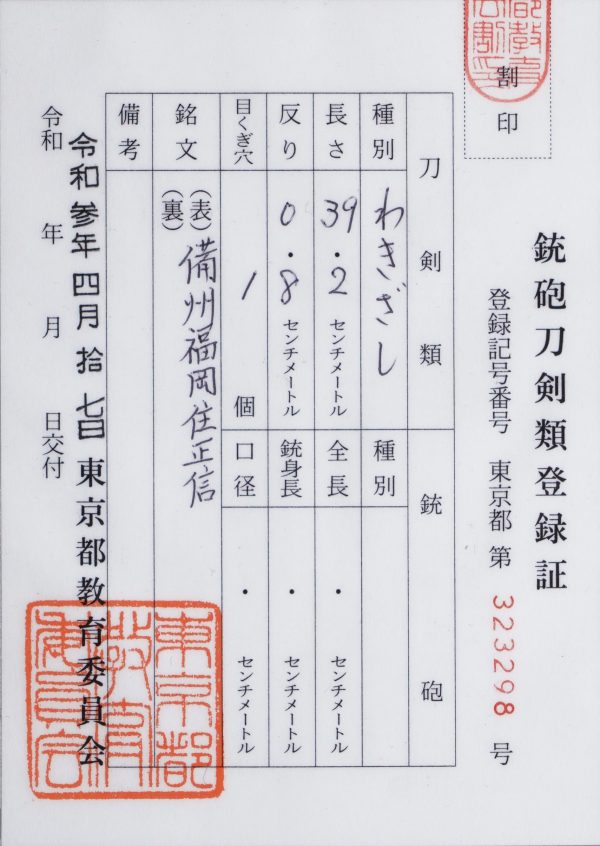 割印
銃砲刀剣類登録証
登録記号番号 東京都 第 323298 号
刀剣類
種別 わきざし
長さ 39.2 センチメートル
反り 0.8 センチメートル
目くぎ穴 1 個
銘文 (表) 備州福岡住正信
(裏)
備考
銃砲
種別
全長 ・ センチメートル
銃身長 ・ センチメートル
口径 ・ センチメートル
令和参年四月拾七日
令和 年 月 日交付
東京都教育委員会
東京都教育委員会